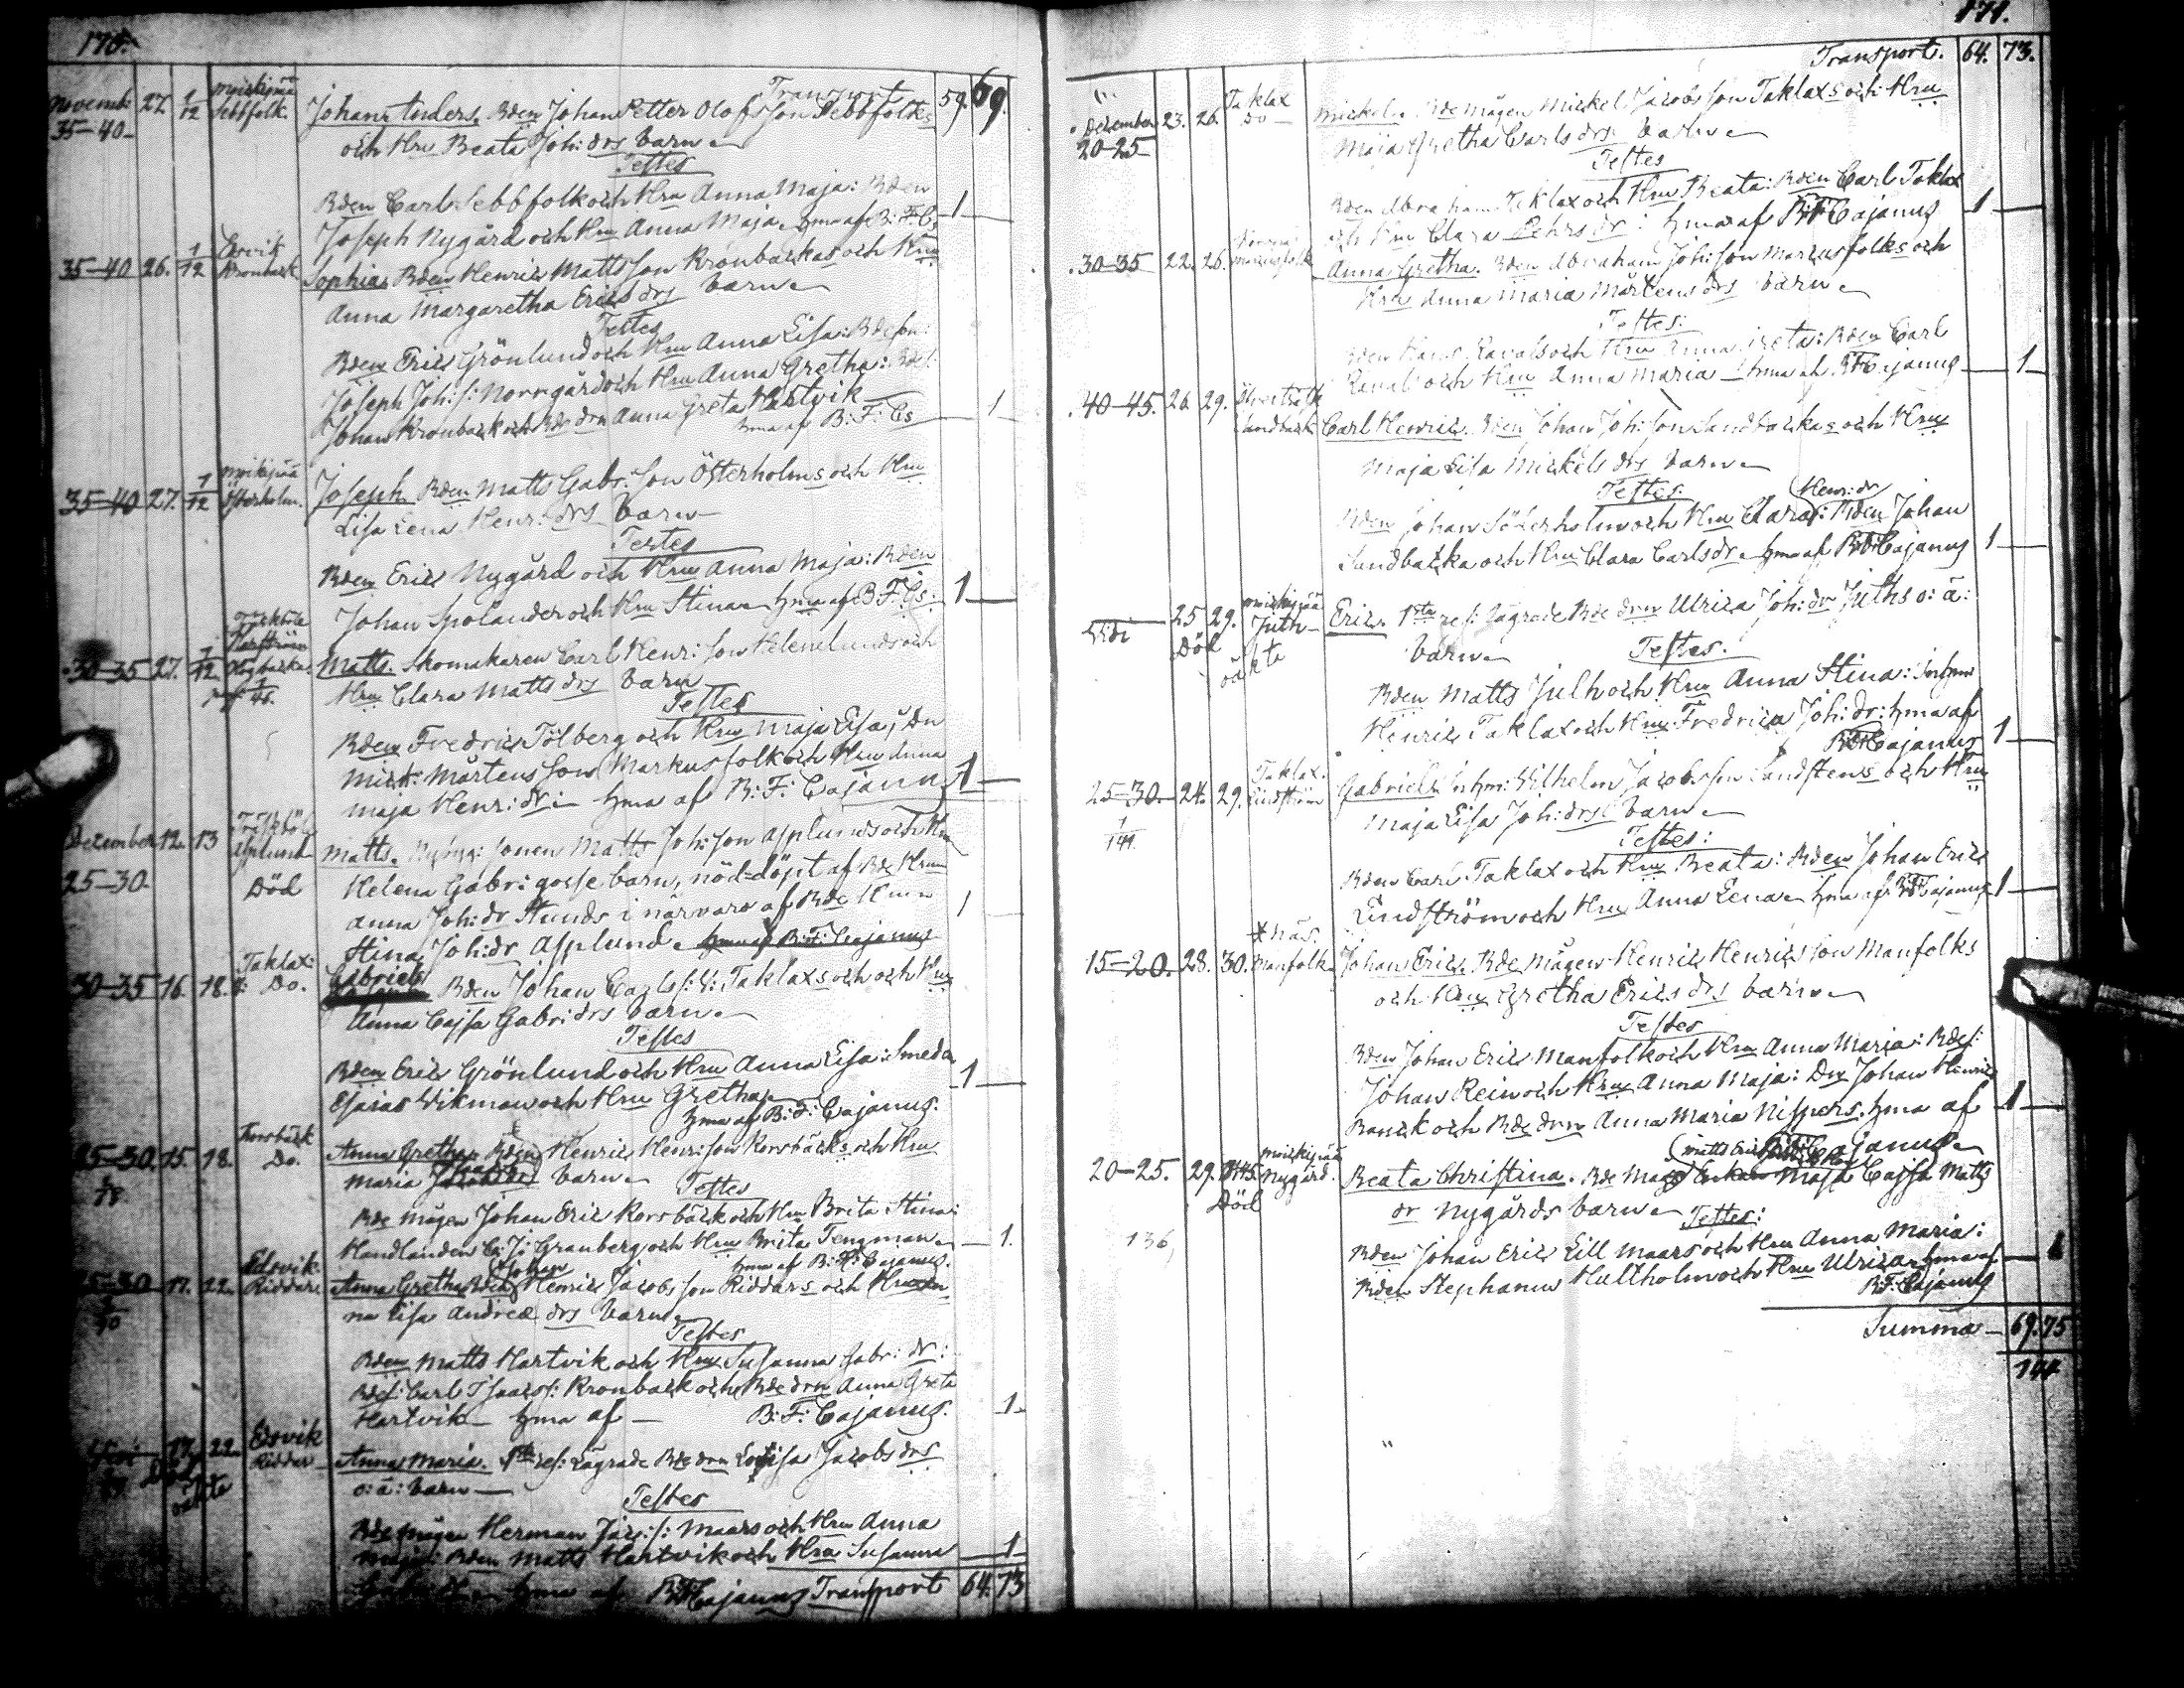 170.
Transport 59. 69.
Novemb: 27. 1/12 Sebbfolk. Johan Anders. Bden Johan Petter Olofsson Sebbfolks
35–40 och Hru Beata Joh: drs barn
Testes
Bden Carl Sebbfolk och Hru Anna Maja: Bden
Joseph Nygård och Hru Anna Maja. hma af B: F: Cs 1
35–40 26. 1/12 Edsvik Kronback Sophia. Bden Henric Mattsson Kronbackas och Hru
Anna Margaretha Erics drs barn
Testes
Bden Eric Grönlund och Hru Anna Lisa: Bdeson:
Joseph Joh: s: Norrgård och Hru Anna Gretha: Bdes:
Johan Kronback och Bde drn Anna Greta Hartvik
hma af B: F: Cs 1
35–40 27. 1/12 Österholm. Joseph Bden Matts Gabr: son Österholms och Hru
Lisa Lena Henr: drs barn
Testes
Bden Eric Nygård och Hru Anna Maja: Bden
Johan Spolander och Hru Stina hma af B: F: Cs: 1
30–35 27. 1/12. Matts. Skomakaren Carl Henr: son Helenelunds och
Hru Clara Matts drs barn
Testes
Bden Fredric Tölberg och Hru Maja Lisa; Dn
Mick: Mårtensson Markusfolk och Hru Anna
Maja Henr: dr: hma af B: F: Cajanus 1
December 12. 13 Asplund Matts. Matts Joh: son Asplunds och Hru
25–30. Död Helena Gabr: gosse barn, nöd-döpt af Bde Hrun
Anna Joh: dr Stunds i närvaro af Bde Hrun 1
Stina Joh: dr Asplund. hma af B: F: Cajanus
30–35 16. 18. Taklax: Do. Gabriel Bden Johan Carls s: Taklaxs och och Hru
Anna Cajsa Gabr: drs barn.
Testes
Bden Eric Grönlund och Hru Anna Lisa: Smeden
Esaias Wikman och Hru Gretha 1
hma af B: F: Cajanus.
25–30. 15. 18. Korsbäck Do. Anna Gretha Bden Henric Henr: son Korsbäcks och Hru
Maria barn Testes
Bde mågen Johan Eric Korsbäck och Hru Brita Stina:
Handlanden C: J: Granberg och Hru Brita Tengman 1.
hma af B: F: Cajanus.
25–30 17. 22. Edsvik Riddar. Anna Gretha Bden Johan Henric Jacobsson Riddars och Hru An
na Lisa Andreæ drs barn
Testes
Bden Matts Hartvik och Hru Susanna Gabr: dr:
Bdes: Carl Isaacs: Kronback och Bde drn Anna Greta
Hartvik hma af B: F: Cajanus. 1
17. 22. Edsvik Riddar Anna Maria. 1sta res: Lägrade Bde drn Lovisa Jacobs drs
Död oäkta o: ä: barn
Testes
Bde mågen Herman Jac: s: Maars och Hru Anna
Maja: Bden Matts Hartvik och Hru Susanna 1
hma af B: F: Cajanus Transport 64. 73
171.
Transport. 64. 73.
December 23. 26. Taklax Do Mickel. Bde mågen Mickel Jacobsson Taklaxs och Hru
20–25 Maja Gretha Carls drs barn
Testes
Bden Abraham Taklax och Hru Beata: Bden Carl Taklax
och Hru Clara Pehrs dr: hma af B: F: Cajanus 1
30–35 22. 26. Marcusfolk Anna Gretha. Bden Abraham Joh: son Marcusfolks och
Hru Anna Maria Mårtens drs barn
Testes:
Bden Hans Ravals och Hru Anna Greta: Bden Carl
Ravals och Hru Anna Maria hma af B: F: Cajanus 1
40–45. 26. 29. Sandback Carl Henric. Bden Johan Joh: son Sandbackas och Hru
Maja Lisa Mickels drs barn
Testes
Bden Johan Söderholm och Hru Clara Henr: dr: Bden Johan
Sandbacka och Hru Clara Carls dr. hma af B: F: Cajanus 1
25 29. Juth Eric. 1sta res: Lägrade Bde drn Ulrica Joh: dr Juths o: ä:
Död oäkta barn Testes.
Bden Matts Juth och Hru Anna Stina: Inhm:
Henric Taklax och Hru Fredrica Joh: dr: hma af
B: F: Cajanus 1
25–30. 24. 29. Taklax. Lindström Gabriel. Inhm: Wilhelm Jacobsson Sandstens och Hru
Maja Lisa Joh: drs barn
Testes:
Bden Carl Taklax och Hru Beata: Bden Johan Eric
Lindström och Hru Anna Lena hma af B: F: Cajanus 1
15–20. 28. 30. Näs. Manfolk Johan Eric. Bde mågen Henric Henricsson Manfolks
och Hru Gretha Erics drs barn
Testes
Bden Johan Eric Manfolk och Hru Anna Maria: Bdes:
Johan Rein och Hru Anna Maja: Dn Johan Henric
Banck och Bde drn Anna Maria Nisspers. hma af 1
B: F: Cajanus
20–25. 29. Nygård. Beata Christina. Bde Maja Cajsa Matts
Död dr Nygårds barn Testes:
136, Bden Johan Eric Lill Maars och Hru Anna Maria:
Bden Stephanus Hultholm och Hru Ulrica. hma af 1
B: F: Cajanus
Summa 69. 75
144